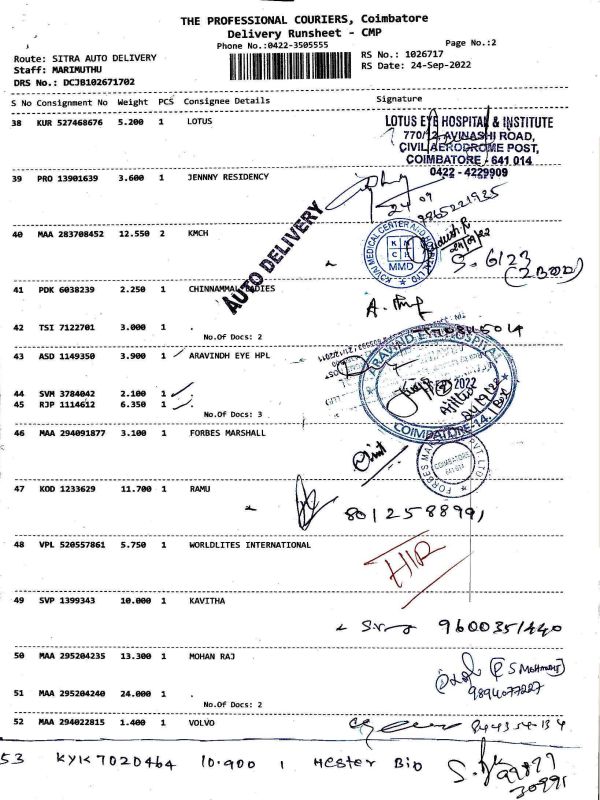 THE PROFESSIONAL COURIERS, Coimbatore
Delivery Runsheet - CMP
Phone No.:0422-3505555
Page No.:2
Route: SITRA AUTO DELIVERY
RS No.: 1026717
Staff: MARIMUTHU
RS Date: 24-Sep-2022
DRS No.: DCJB102671702
S No Consignment No Weight PCS Consignee Details Signature
38 KUR 527468676 5.200 1 LOTUS
LOTUS EYE HOSPITAL & INSTITUTE
770/12, AVINASHI ROAD,
CIVIL AERODROME POST,
COIMBATORE - 641 014
0422 - 4229909
39 PRO 13901639 3.600 1 JENNNY RESIDENCY
24 09
9865221935
AUTO DELIVERY
40 MAA 283708452 12.550 2 KMCH
KOVAI MEDICAL CENTER AND HOSPITAL LTD
KMCH
MMD
24/09/22
S. 6123
41 PDK 6038239 2.250 1 CHINNAMMAL LADIES
42 TSI 7122701 3.000 1 .
No.Of Docs: 2
43 ASD 1149350 3.900 1 ARAVINDH EYE HPL
ARAVIND EYE HOSPITAL
2022
COIMBATORE-14.
44 SVM 3784042 2.100 1 .
45 RJP 1114612 6.350 1 .
No.Of Docs: 3
46 MAA 294091877 3.100 1 FORBES MARSHALL
FORBES MARSHALL PVT LTD
COIMBATORE
641 014
47 KOD 1233629 11.700 1 RAMU
8012588991
48 VPL 520557861 5.750 1 WORLDLITES INTERNATIONAL
H/R
49 SVP 1399343 10.000 1 KAVITHA
9600351440
50 MAA 295204235 13.300 1 MOHAN RAJ
9894077227
51 MAA 295204240 24.000 1 .
No.Of Docs: 2
52 MAA 294022815 1.400 1 VOLVO
53 KYK7020464 10.900 1 Hester Bio
99899
30991